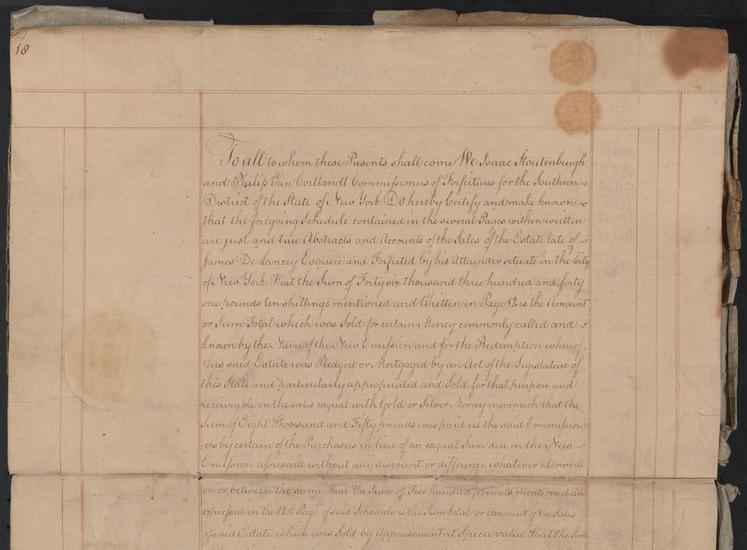 18
To all to whom these Presents shall come We Isaac Stoutenburgh
and Philip Van Cortlandt Commissioners of Forfeitures for the Southern
District of the State of New York Do hereby Certify and make known
that the foregoing Schedule contained in the several Pages within written
are just and true Abstracts and Accounts of the Sales of the Estate late of
James De Lancey Esquire and Forfeited by his Attainder situate in the City
of New York That the Sum of Forty six thousand three hundred and forty
one pounds ten shillings mentioned and Written in Page 12 is the Amount
or Sum Total which was Sold for certain Money commonly called and
known by the Name of the New Emission and for the Redemption whereof
this said Estate was Pledged or Mortgaged by an Act of the Legislature of
this State and particularly appropriated and Sold for that purpose and
receivable on the sales equal with Gold or Silver Money insomuch that the
Sum of Eight Thousand and Fifty pounds was paid us the said Commission
ers by certain of the Purchasers in lieu of an equal Sum due in the New
Emission aforesaid without any discount or difference whatever allowed
on or between the same That the Sum of Five hundred pounds mentioned and
expressed in the 12th Page of said Schedule is the Sum total or amount of the Sales
of said Estate which was Sold by Appraisement at Specie value That the Sum